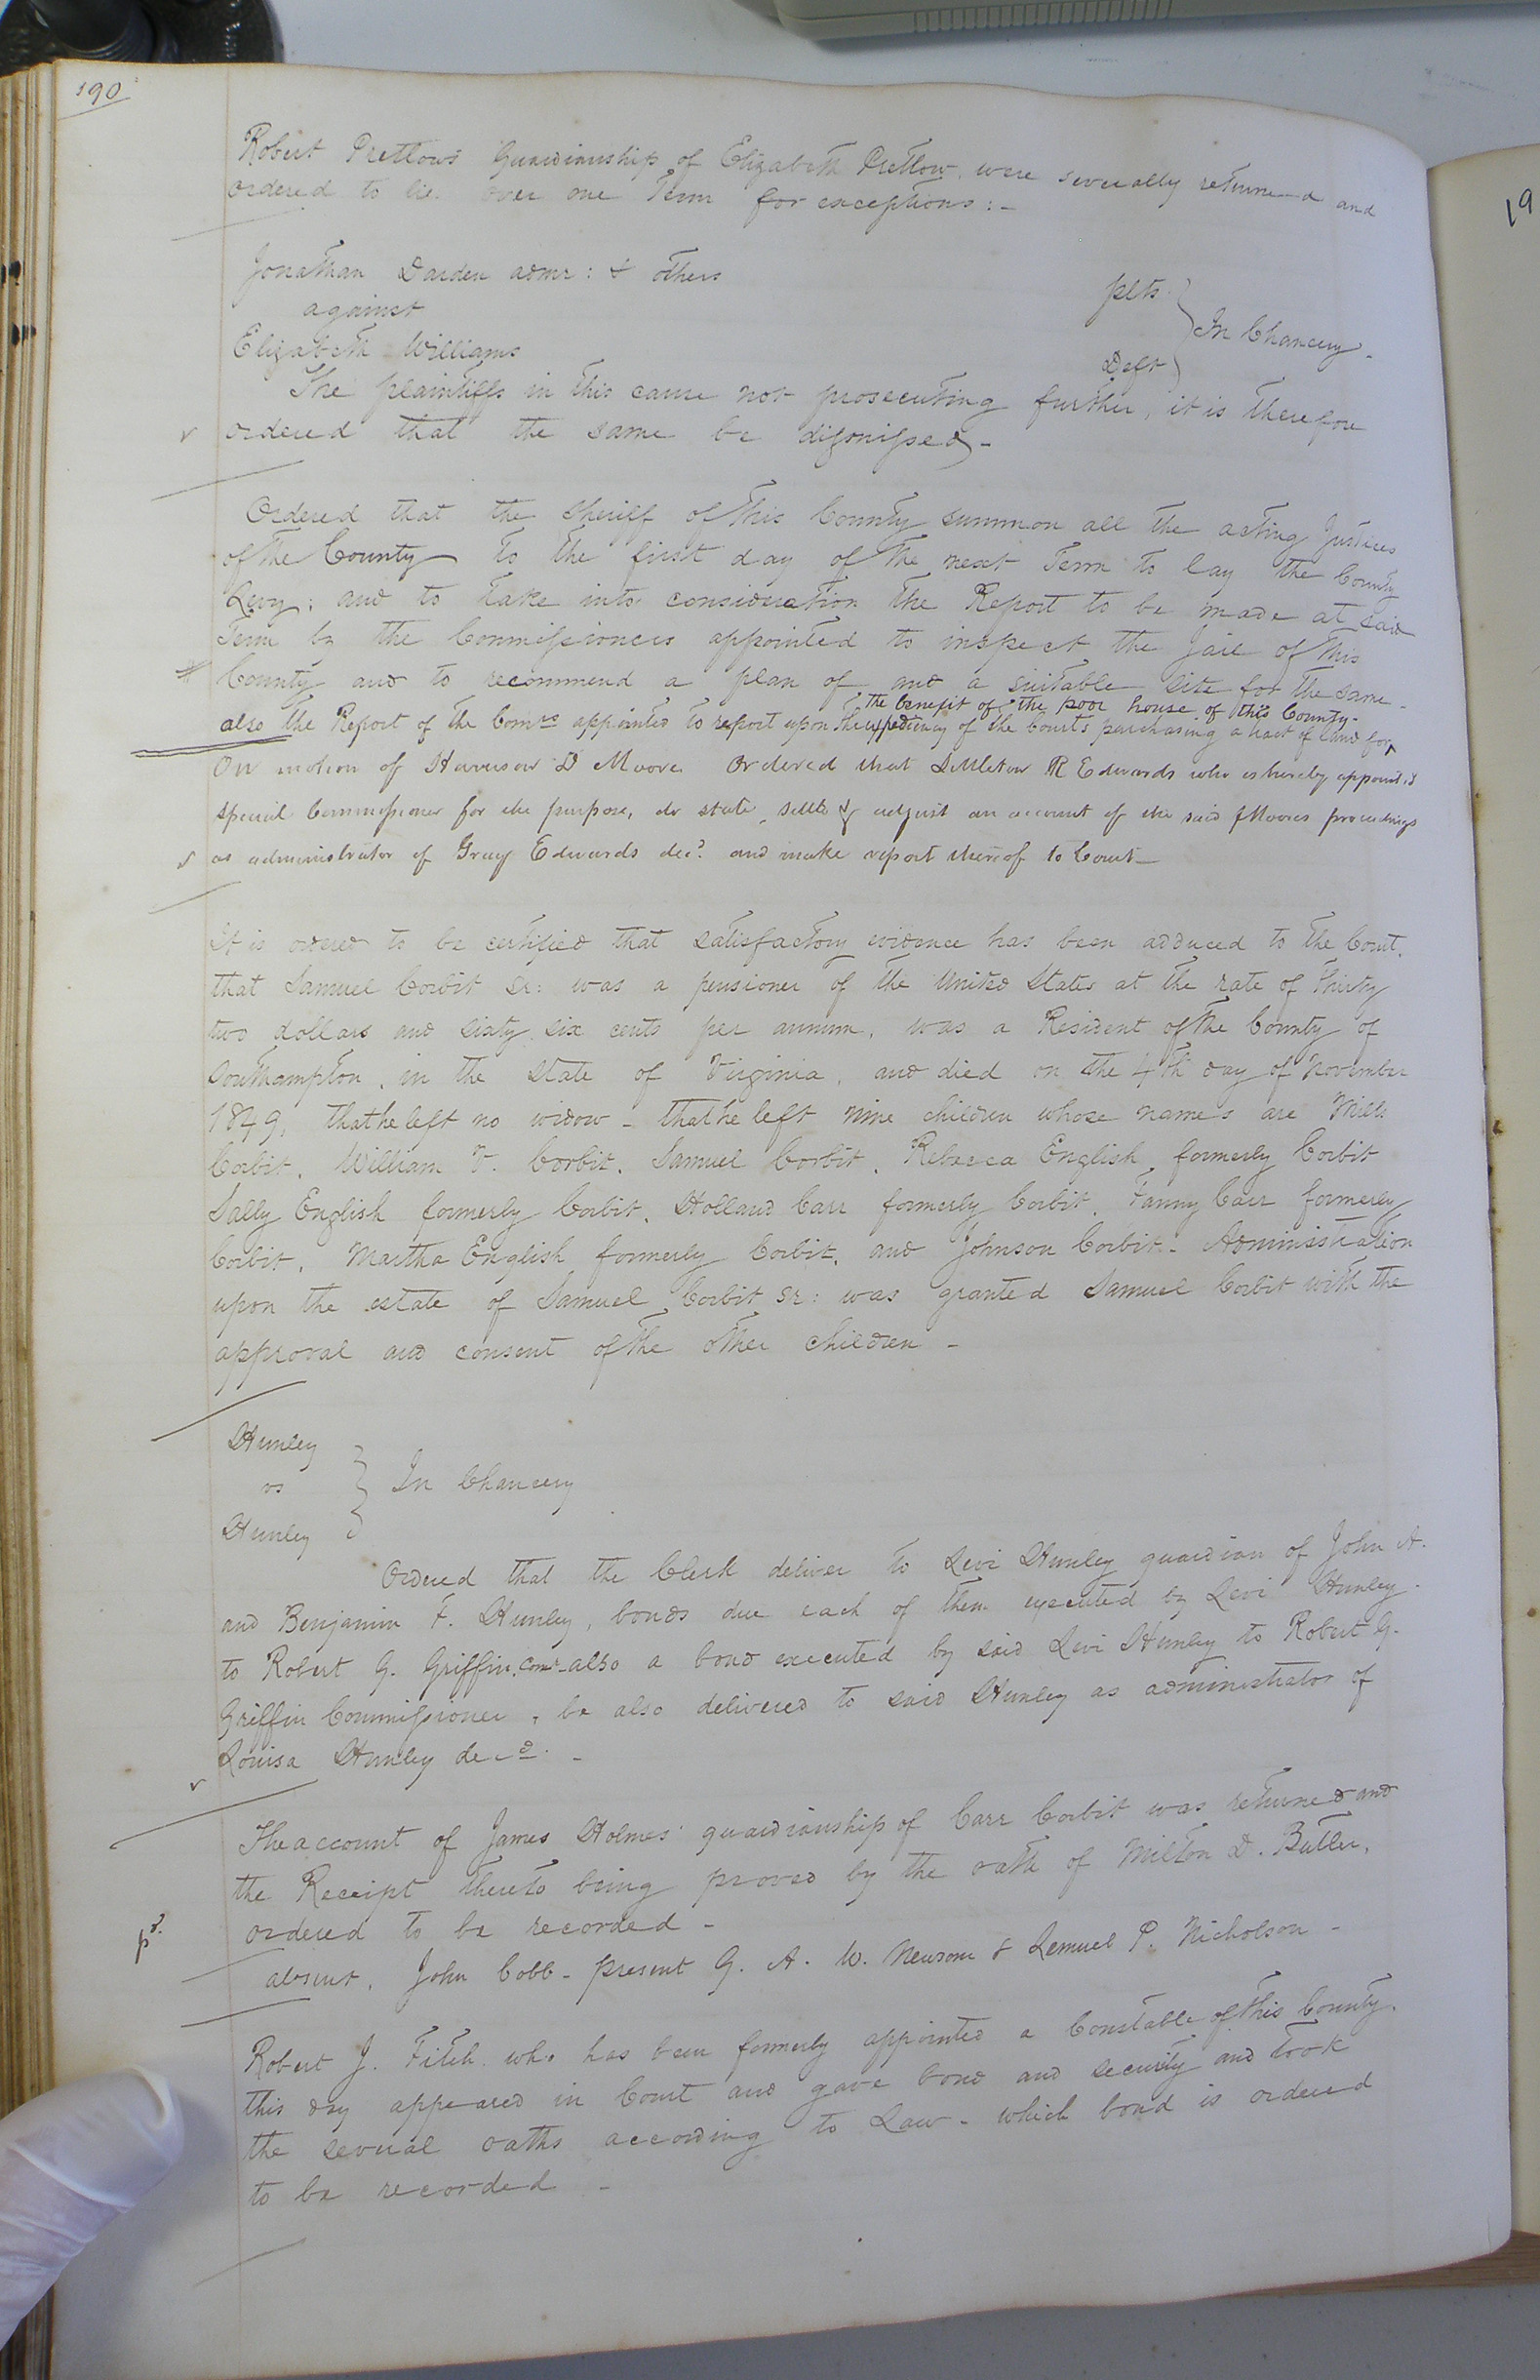 190
19
Robert Pretlow's Guardianship of Elizabeth Pretlow, were severally returned and
ordered to lie over one Term for exceptions:-
Jonathan Darden admr: & others plts.
against In Chancery -
Elizabeth Williams Deft
The plaintiffs in this cause not prosecuting further, it is therefore
ordered that the same be dismissed -
Ordered that the Sheriff of this County summon all the acting Justices
of the County to the first day of the next Term to lay the County
Levy; and to take into consideration the Report to be made at said
Term by the Commissioners appointed to inspect the Jail of this
County and to recommend a plan of and a suitable site for the same -
the benefit of the poor house of this County -
also the Report of the Comrs appointed to report upon the expediency of the Courts purchasing a tract of land for ^
On motion of Harrison D Moore Ordered that Littleton R Edwards who is hereby appointed
special Commissioner for the purpose, do state, settle & adjust an account of the said Moores proceedings
as administrator of Gray Edwards decd. and make report thereof to Court -
It is ordered to be certified that satisfactory evidence has been adduced to the Court,
that Samuel Corbit Sr: was a pensioner of the United States at the rate of Thirty
two dollars and sixty six cents per annum, was a Resident of the County of
Southampton, in the State of Virginia, and died on the 4th day of November
1849, that he left no widow - that he left nine children whose names are Mills
Corbit, William V. Corbit, Samuel Corbit, Rebecca English, formerly Corbit
Sally English formerly Corbit, Holland Carr formerly Corbit, Fanny Carr formerly
Corbit, Martha English formerly Corbit, and Johnson Corbit - Administration
upon the estate of Samuel Corbit Sr: was granted Samuel Corbit with the
approval and consent of the other children -
Hunley
vs In Chancery
Hunley
Ordered that the Clerk deliver to Levi Hunley guardian of John A.
and Benjamin F. Hunley, bonds due each of them executed by Levi Hunley -
to Robert G. Griffin, Comr - also a bond executed by said Levi Hunley to Robert G.
Griffin Commissioner, be also delivered to said Hunley as administrator of
Louisa Hunley decd. -
The account of James Holmes' guardianship of Carr Corbit was returned and
the Receipt thereto being proved by the oath of Milton D. Butler,
ordered to be recorded -
absent, John Cobb - present G. A. W. Newsom & Lemuel P. Nicholson -
Robert J. Fitch who has been formerly appointed a Constable of this County,
this day appeared in Court and gave bond and security and took
the several oaths according to Law - which bond is ordered
to be recorded -